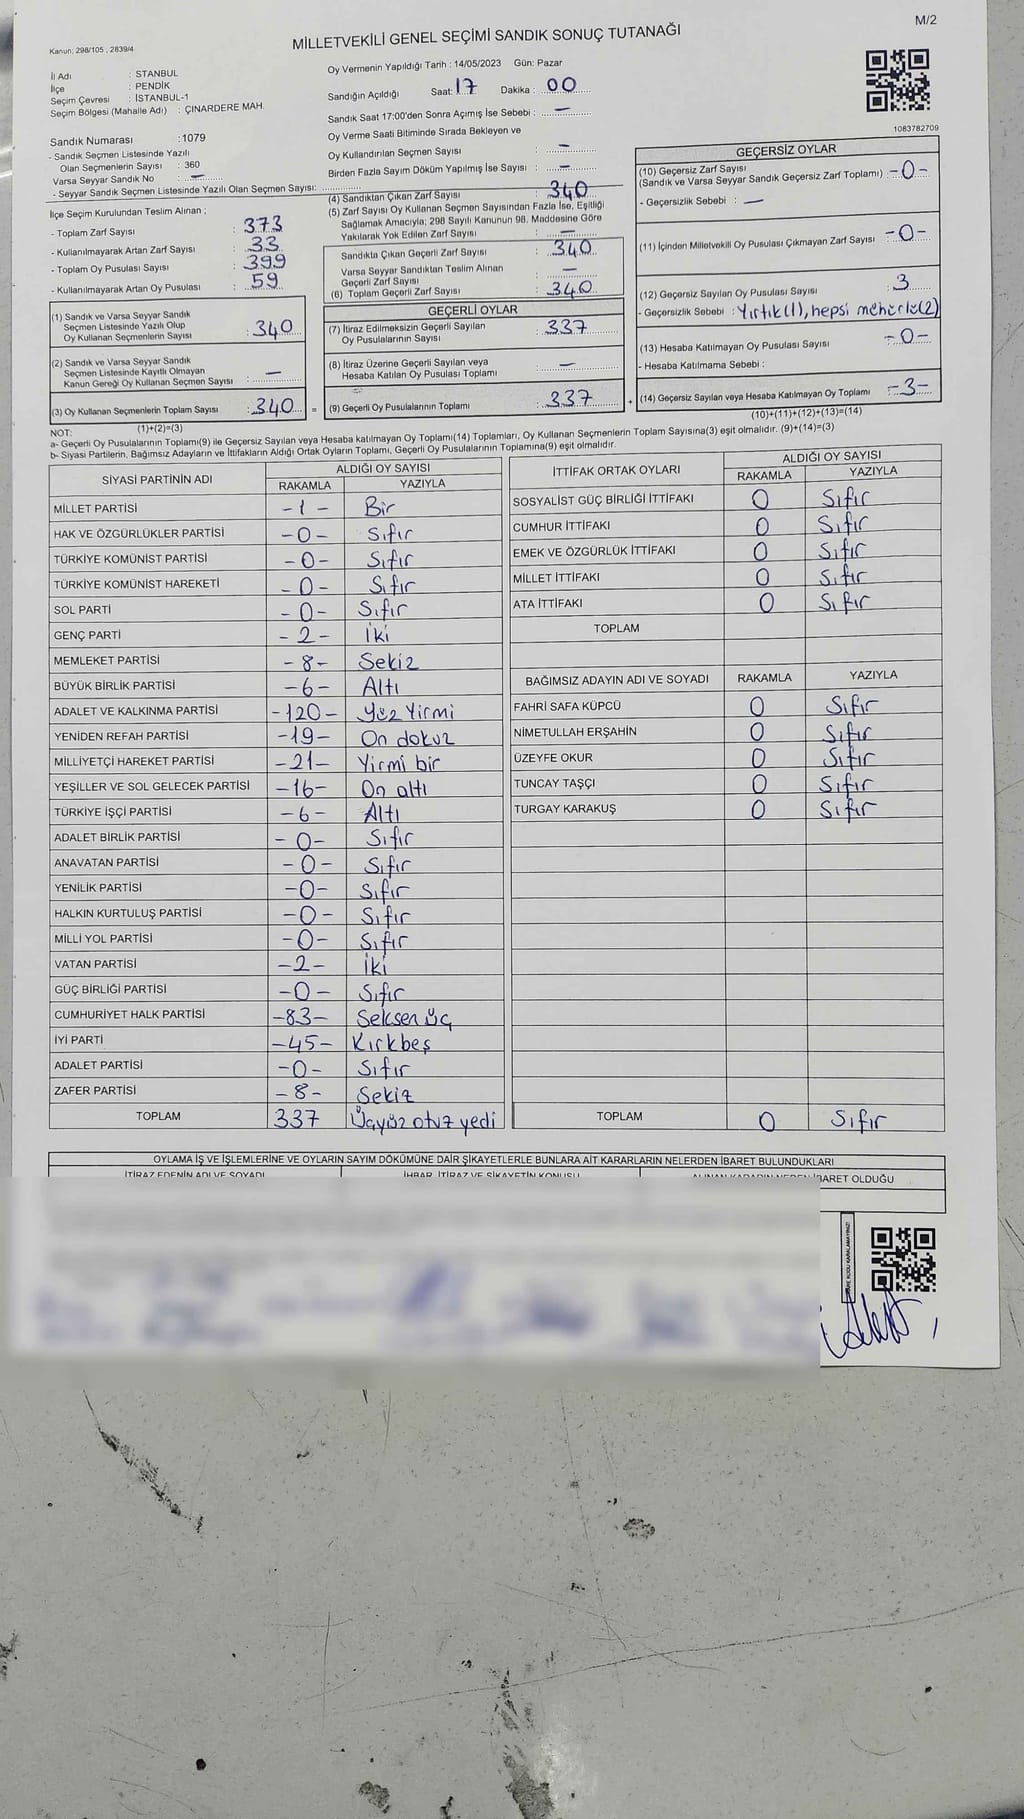 M/2
Kanun: 298/105 , 2839/4
MİLLETVEKİLİ GENEL SEÇİMİ SANDIK SONUÇ TUTANAĞI
İl Adı : STANBUL
İlçe : PENDİK
Seçim Çevresi : İSTANBUL-1
Seçim Bölgesi (Mahalle Adı) : ÇINARDERE MAH.
Oy Vermenin Yapıldığı Tarih : 14/05/2023 Gün: Pazar
Sandığın Açıldığı Saat: 17 Dakika : 00
Sandık Saat 17:00'den Sonra Açımış İse Sebebi : —
Oy Verme Saati Bitiminde Sırada Bekleyen ve
Oy Kullandırılan Seçmen Sayısı : —
Birden Fazla Sayım Döküm Yapılmış İse Sayısı : —
1083782709
Sandık Numarası :1079
- Sandık Seçmen Listesinde Yazılı
Olan Seçmenlerin Sayısı : 360
Varsa Seyyar Sandık No : —
- Seyyar Sandık Seçmen Listesinde Yazılı Olan Seçmen Sayısı:
İlçe Seçim Kurulundan Teslim Alınan ;
- Toplam Zarf Sayısı : 373
- Kullanılmayarak Artan Zarf Sayısı : 33
- Toplam Oy Pusulası Sayısı : 399
- Kullanılmayarak Artan Oy Pusulası : 59
(1) Sandık ve Varsa Seyyar Sandık
Seçmen Listesinde Yazılı Olup
Oy Kullanan Seçmenlerin Sayısı : 340
(2) Sandık ve Varsa Seyyar Sandık
Seçmen Listesinde Kayıtlı Olmayan
Kanun Gereği Oy Kullanan Seçmen Sayısı : —
(3) Oy Kullanan Seçmenlerin Toplam Sayısı : 340 =
(1)+(2)=(3)
(4) Sandıktan Çıkan Zarf Sayısı : 340
(5) Zarf Sayısı Oy Kullanan Seçmen Sayısından Fazla İse, Eşitliği
Sağlamak Amacıyla; 298 Sayılı Kanunun 98. Maddesine Göre
Yakılarak Yok Edilen Zarf Sayısı : —
Sandıkta Çıkan Geçerli Zarf Sayısı : 340
Varsa Seyyar Sandıktan Teslim Alınan
Geçerli Zarf Sayısı : —
(6) Toplam Geçerli Zarf Sayısı : 340
GEÇERLİ OYLAR
(7) İtiraz Edilmeksizin Geçerli Sayılan
Oy Pusulalarının Sayısı : 337
(8) İtiraz Üzerine Geçerli Sayılan veya
Hesaba Katılan Oy Pusulası Toplamı : —
(9) Geçerli Oy Pusulalarının Toplamı : 337 +
GEÇERSİZ OYLAR
(10) Geçersiz Zarf Sayısı
(Sandık ve Varsa Seyyar Sandık Geçersiz Zarf Toplamı) : -0-
- Geçersizlik Sebebi : —
(11) İçinden Milletvekili Oy Pusulası Çıkmayan Zarf Sayısı : -0-
(12) Geçersiz Sayılan Oy Pusulası Sayısı : 3
- Geçersizlik Sebebi : Yırtık(1), hepsi mühürlü(2)
(13) Hesaba Katılmayan Oy Pusulası Sayısı : -0-
- Hesaba Katılmama Sebebi :
(14) Geçersiz Sayılan veya Hesaba Katılmayan Oy Toplamı : -3-
(10)+(11)+(12)+(13)=(14)
NOT:
a- Geçerli Oy Pusulalarının Toplamı(9) ile Geçersiz Sayılan veya Hesaba katılmayan Oy Toplamı(14) Toplamları, Oy Kullanan Seçmenlerin Toplam Sayısına(3) eşit olmalıdır. (9)+(14)=(3)
b- Siyasi Partilerin, Bağımsız Adayların ve İttifakların Aldığı Ortak Oyların Toplamı, Geçerli Oy Pusulalarının Toplamına(9) eşit olmalıdır.
SİYASİ PARTİNİN ADI ALDIĞI OY SAYISI
RAKAMLA YAZIYLA
MİLLET PARTİSİ -1- Bir
HAK VE ÖZGÜRLÜKLER PARTİSİ -0- Sıfır
TÜRKİYE KOMÜNİST PARTİSİ -0- Sıfır
TÜRKİYE KOMÜNİST HAREKETİ -0- Sıfır
SOL PARTİ -0- Sıfır
GENÇ PARTİ -2- İki
MEMLEKET PARTİSİ -8- Sekiz
BÜYÜK BİRLİK PARTİSİ -6- Altı
ADALET VE KALKINMA PARTİSİ -120- Yüz Yirmi
YENİDEN REFAH PARTİSİ -19- On dokuz
MİLLİYETÇİ HAREKET PARTİSİ -21- Yirmi bir
YEŞİLLER VE SOL GELECEK PARTİSİ -16- On altı
TÜRKİYE İŞÇİ PARTİSİ -6- Altı
ADALET BİRLİK PARTİSİ -0- Sıfır
ANAVATAN PARTİSİ -0- Sıfır
YENİLİK PARTİSİ -0- Sıfır
HALKIN KURTULUŞ PARTİSİ -0- Sıfır
MİLLİ YOL PARTİSİ -0- Sıfır
VATAN PARTİSİ -2- İki
GÜÇ BİRLİĞİ PARTİSİ -0- Sıfır
CUMHURİYET HALK PARTİSİ -83- Seksen üç
İYİ PARTİ -45- Kırkbeş
ADALET PARTİSİ -0- Sıfır
ZAFER PARTİSİ -8- Sekiz
TOPLAM 337 Üçyüz otuz yedi
İTTİFAK ORTAK OYLARI ALDIĞI OY SAYISI
RAKAMLA YAZIYLA
SOSYALİST GÜÇ BİRLİĞİ İTTİFAKI 0 Sıfır
CUMHUR İTTİFAKI 0 Sıfır
EMEK VE ÖZGÜRLÜK İTTİFAKI 0 Sıfır
MİLLET İTTİFAKI 0 Sıfır
ATA İTTİFAKI 0 Sıfır
TOPLAM
BAĞIMSIZ ADAYIN ADI VE SOYADI RAKAMLA YAZIYLA
FAHRİ SAFA KÜPCÜ 0 Sıfır
NİMETULLAH ERŞAHİN 0 Sıfır
ÜZEYFE OKUR 0 Sıfır
TUNCAY TAŞÇI 0 Sıfır
TURGAY KARAKUŞ 0 Sıfır
TOPLAM 0 Sıfır
OYLAMA İŞ VE İŞLEMLERİNE VE OYLARIN SAYIM DÖKÜMÜNE DAİR ŞİKAYETLERLE BUNLARA AİT KARARLARIN NELERDEN İBARET BULUNDUKLARI
İTİRAZ EDENİN ADI VE SOYADI İHBAR, İTİRAZ VE ŞİKAYETİN KONUSU ALINAN KARARIN NEDEN İBARET OLDUĞU